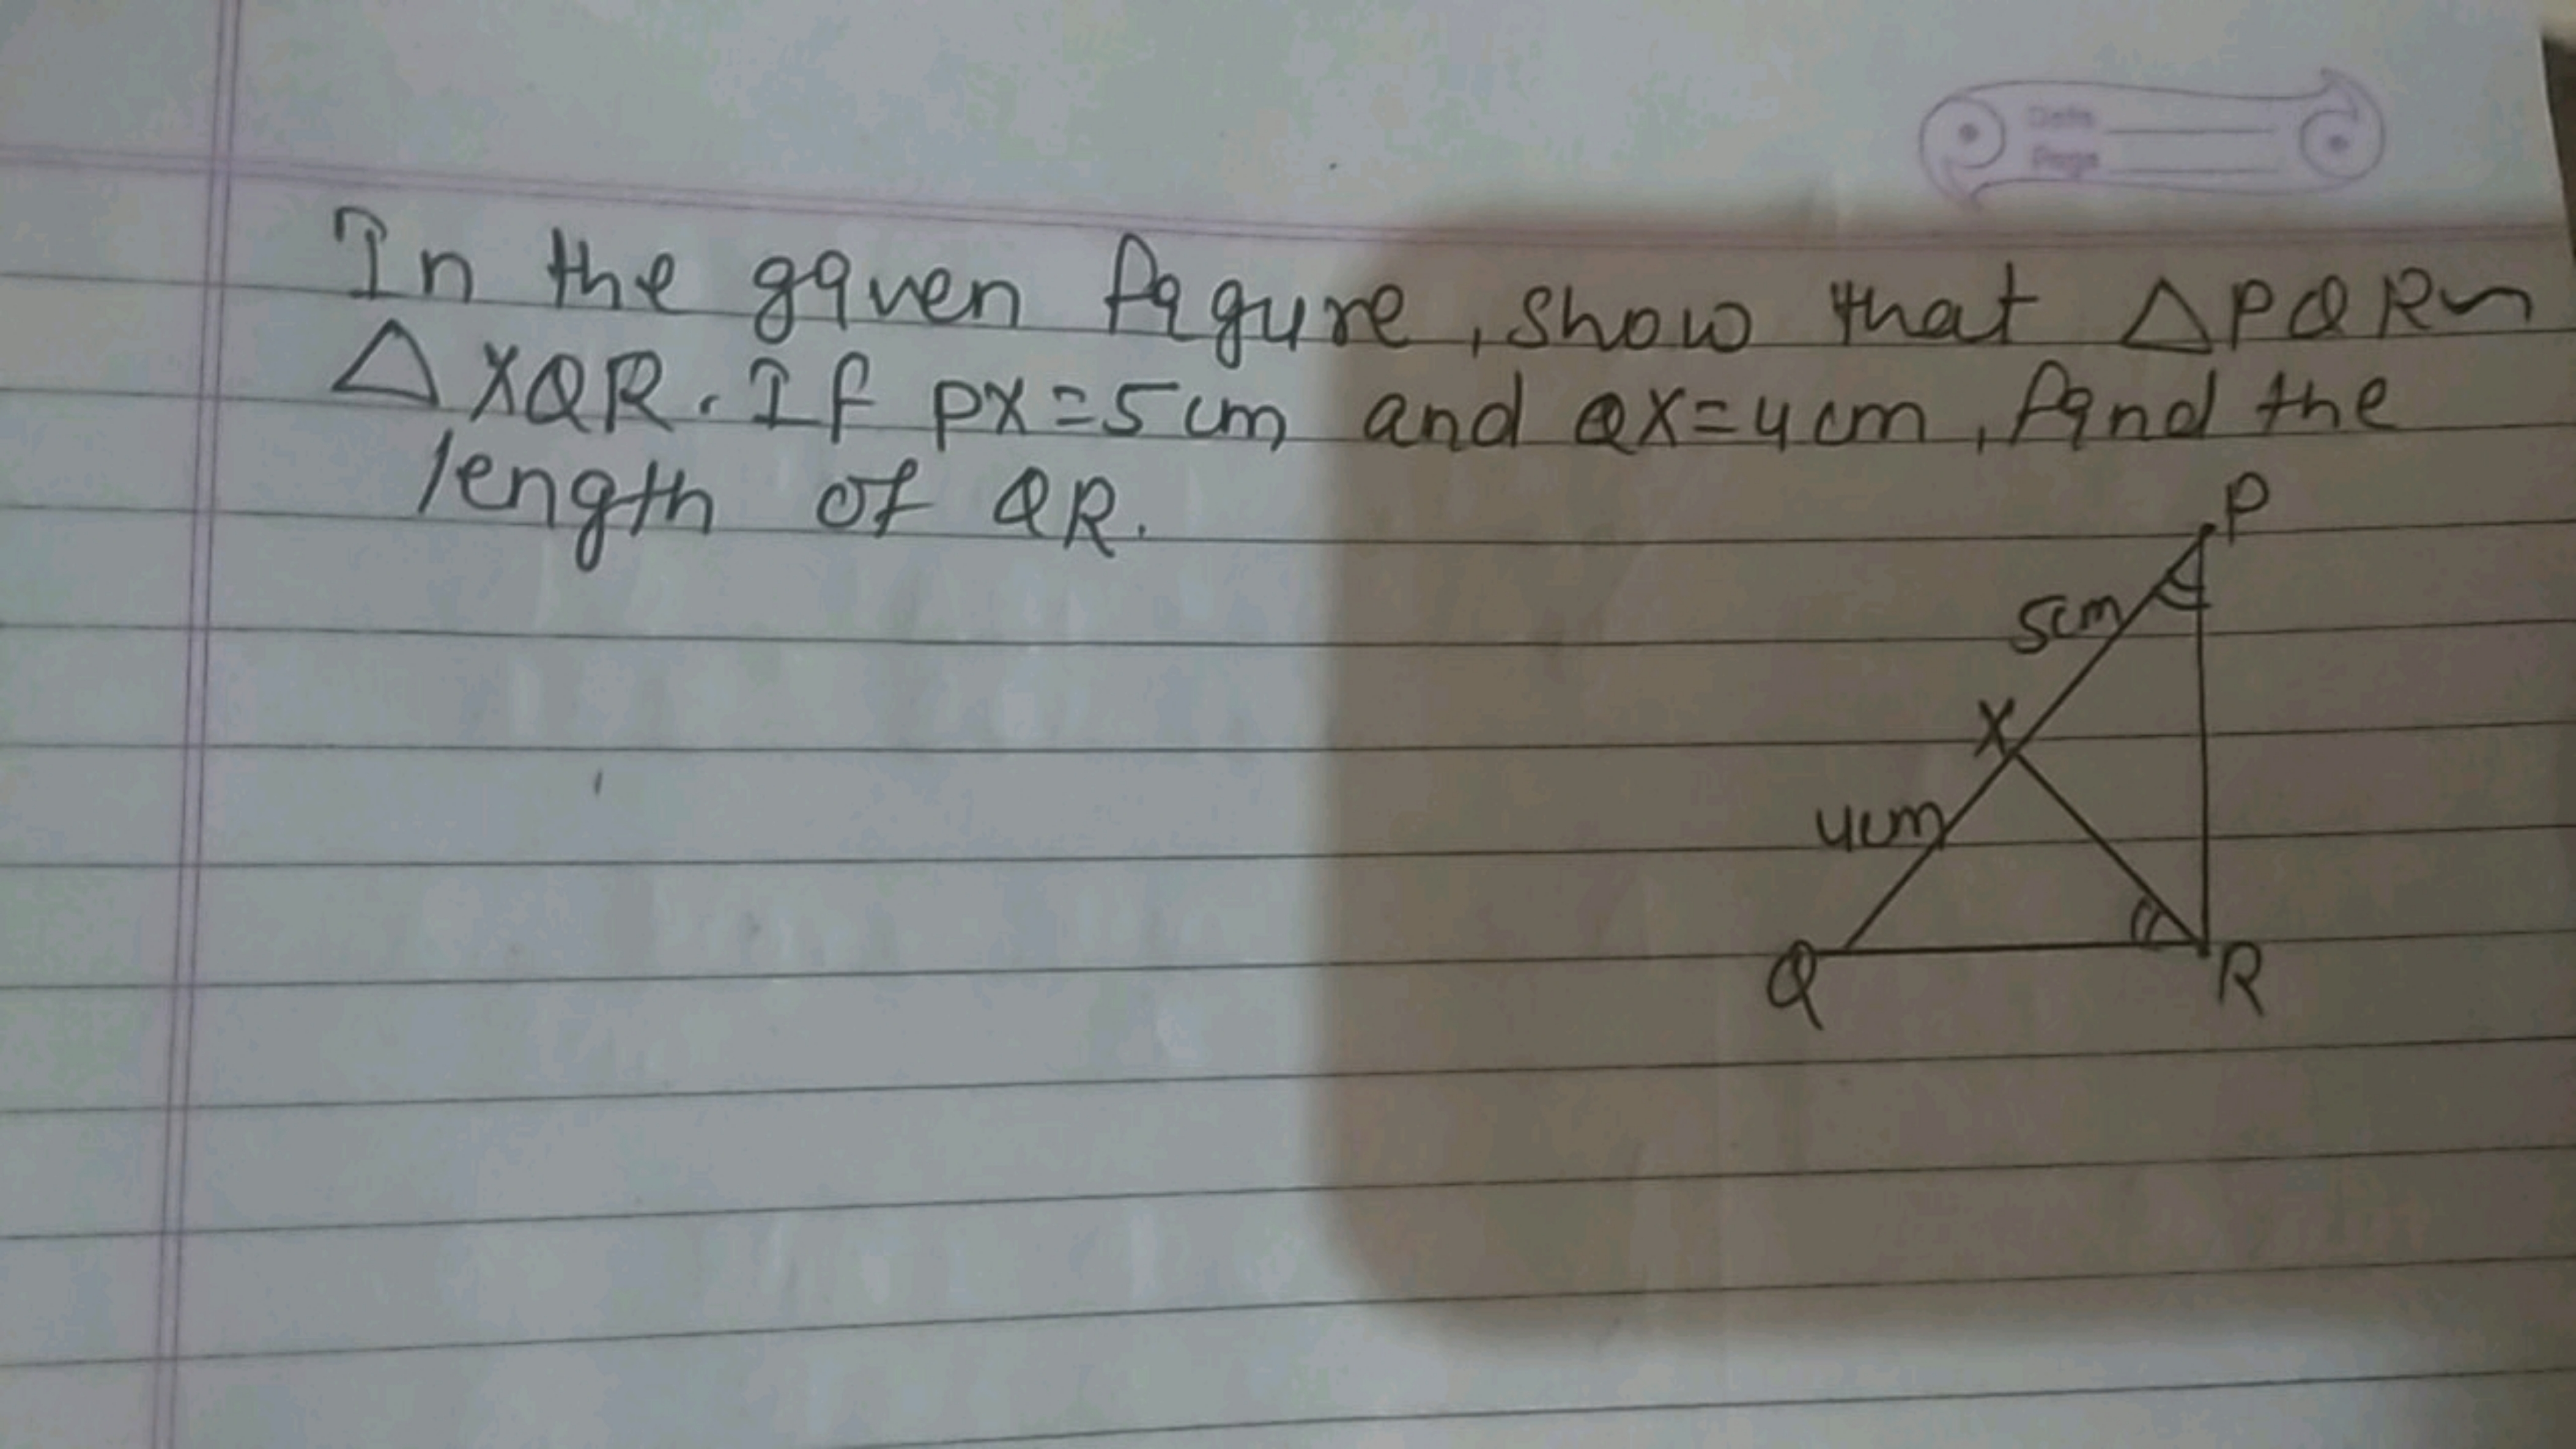 Date
Page
In the given figure, show that △PQR~
△XQR. If PX=5cm and QX=4cm, find the
length of QR.
P
5cm
X
4cm
Q
R